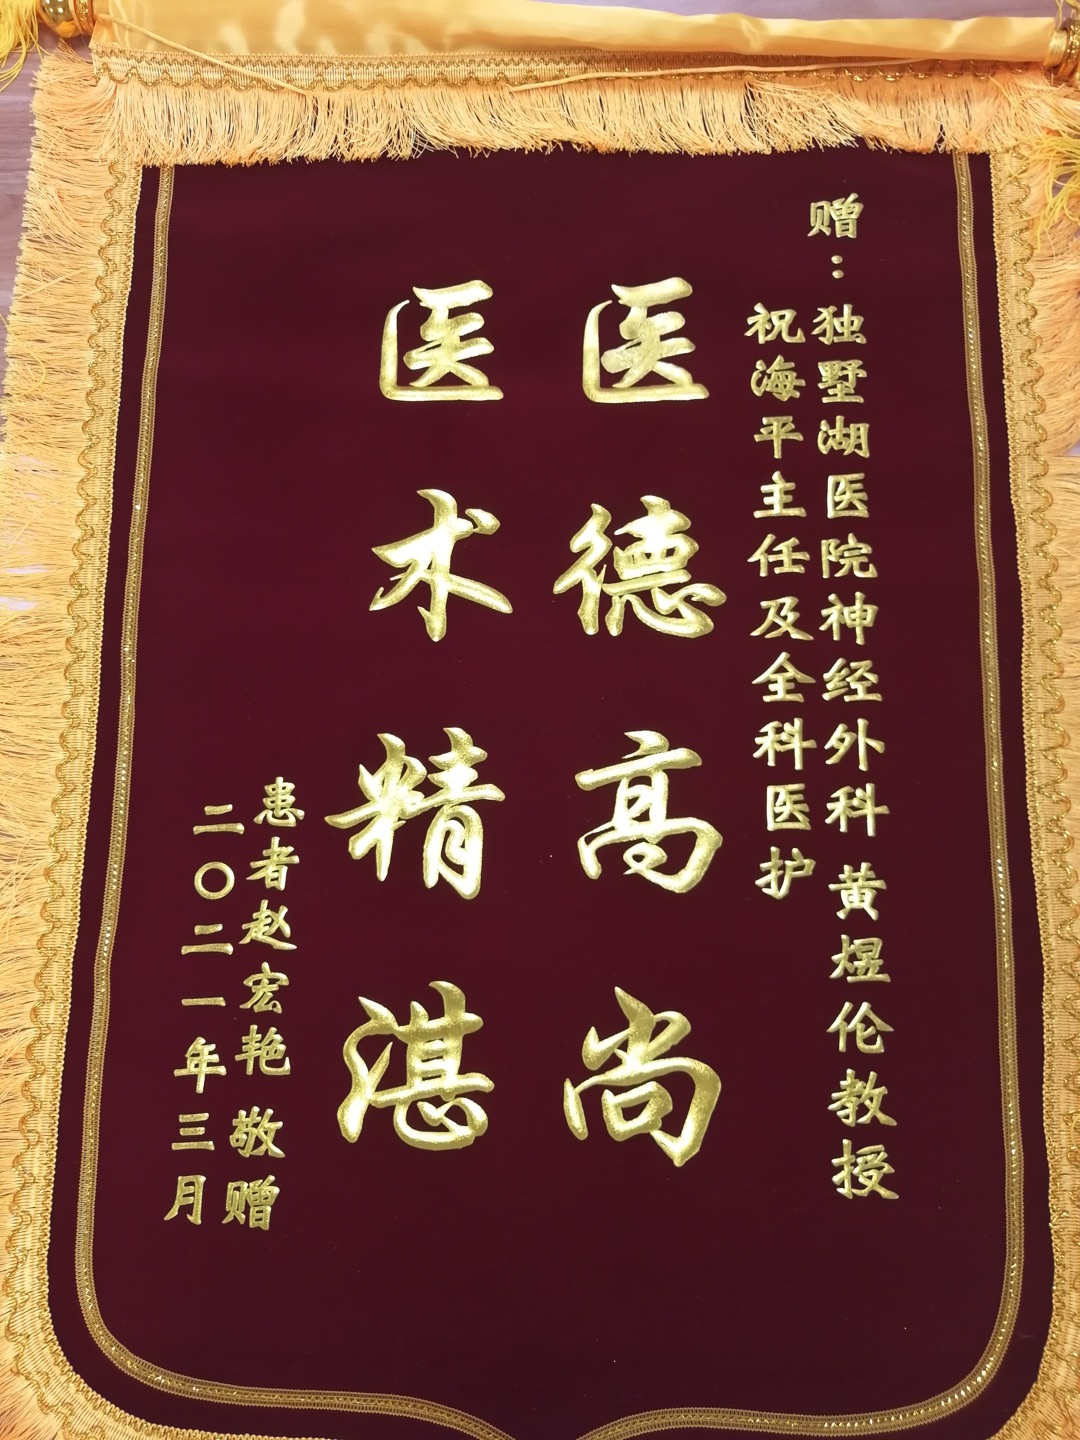 赠：独墅湖医院神经外科 黄煜伦教授
祝海平主任及全科医护
医德高尚
医术精湛
患者赵宏艳 敬赠
二〇二一年三月